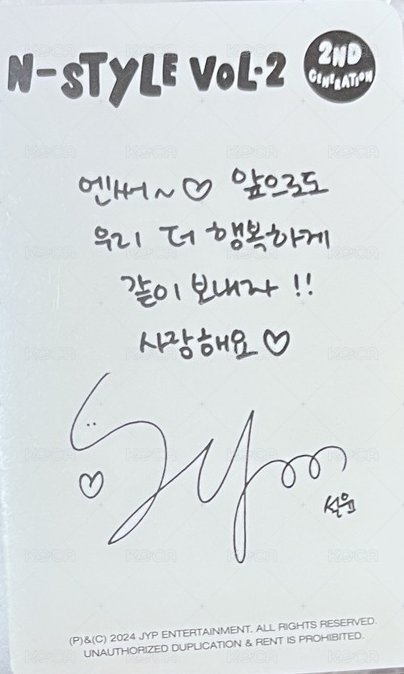 N-STYLE VOL.2 2ND GENERATION
엔써~♡ 앞으로도
우리 더 행복하게
같이 보내자 !!
사랑해요♡
Sym
♡
설윤
(P)&(C) 2024 JYP ENTERTAINMENT. ALL RIGHTS RESERVED.
UNAUTHORIZED DUPLICATION & RENT IS PROHIBITED.
KOCA